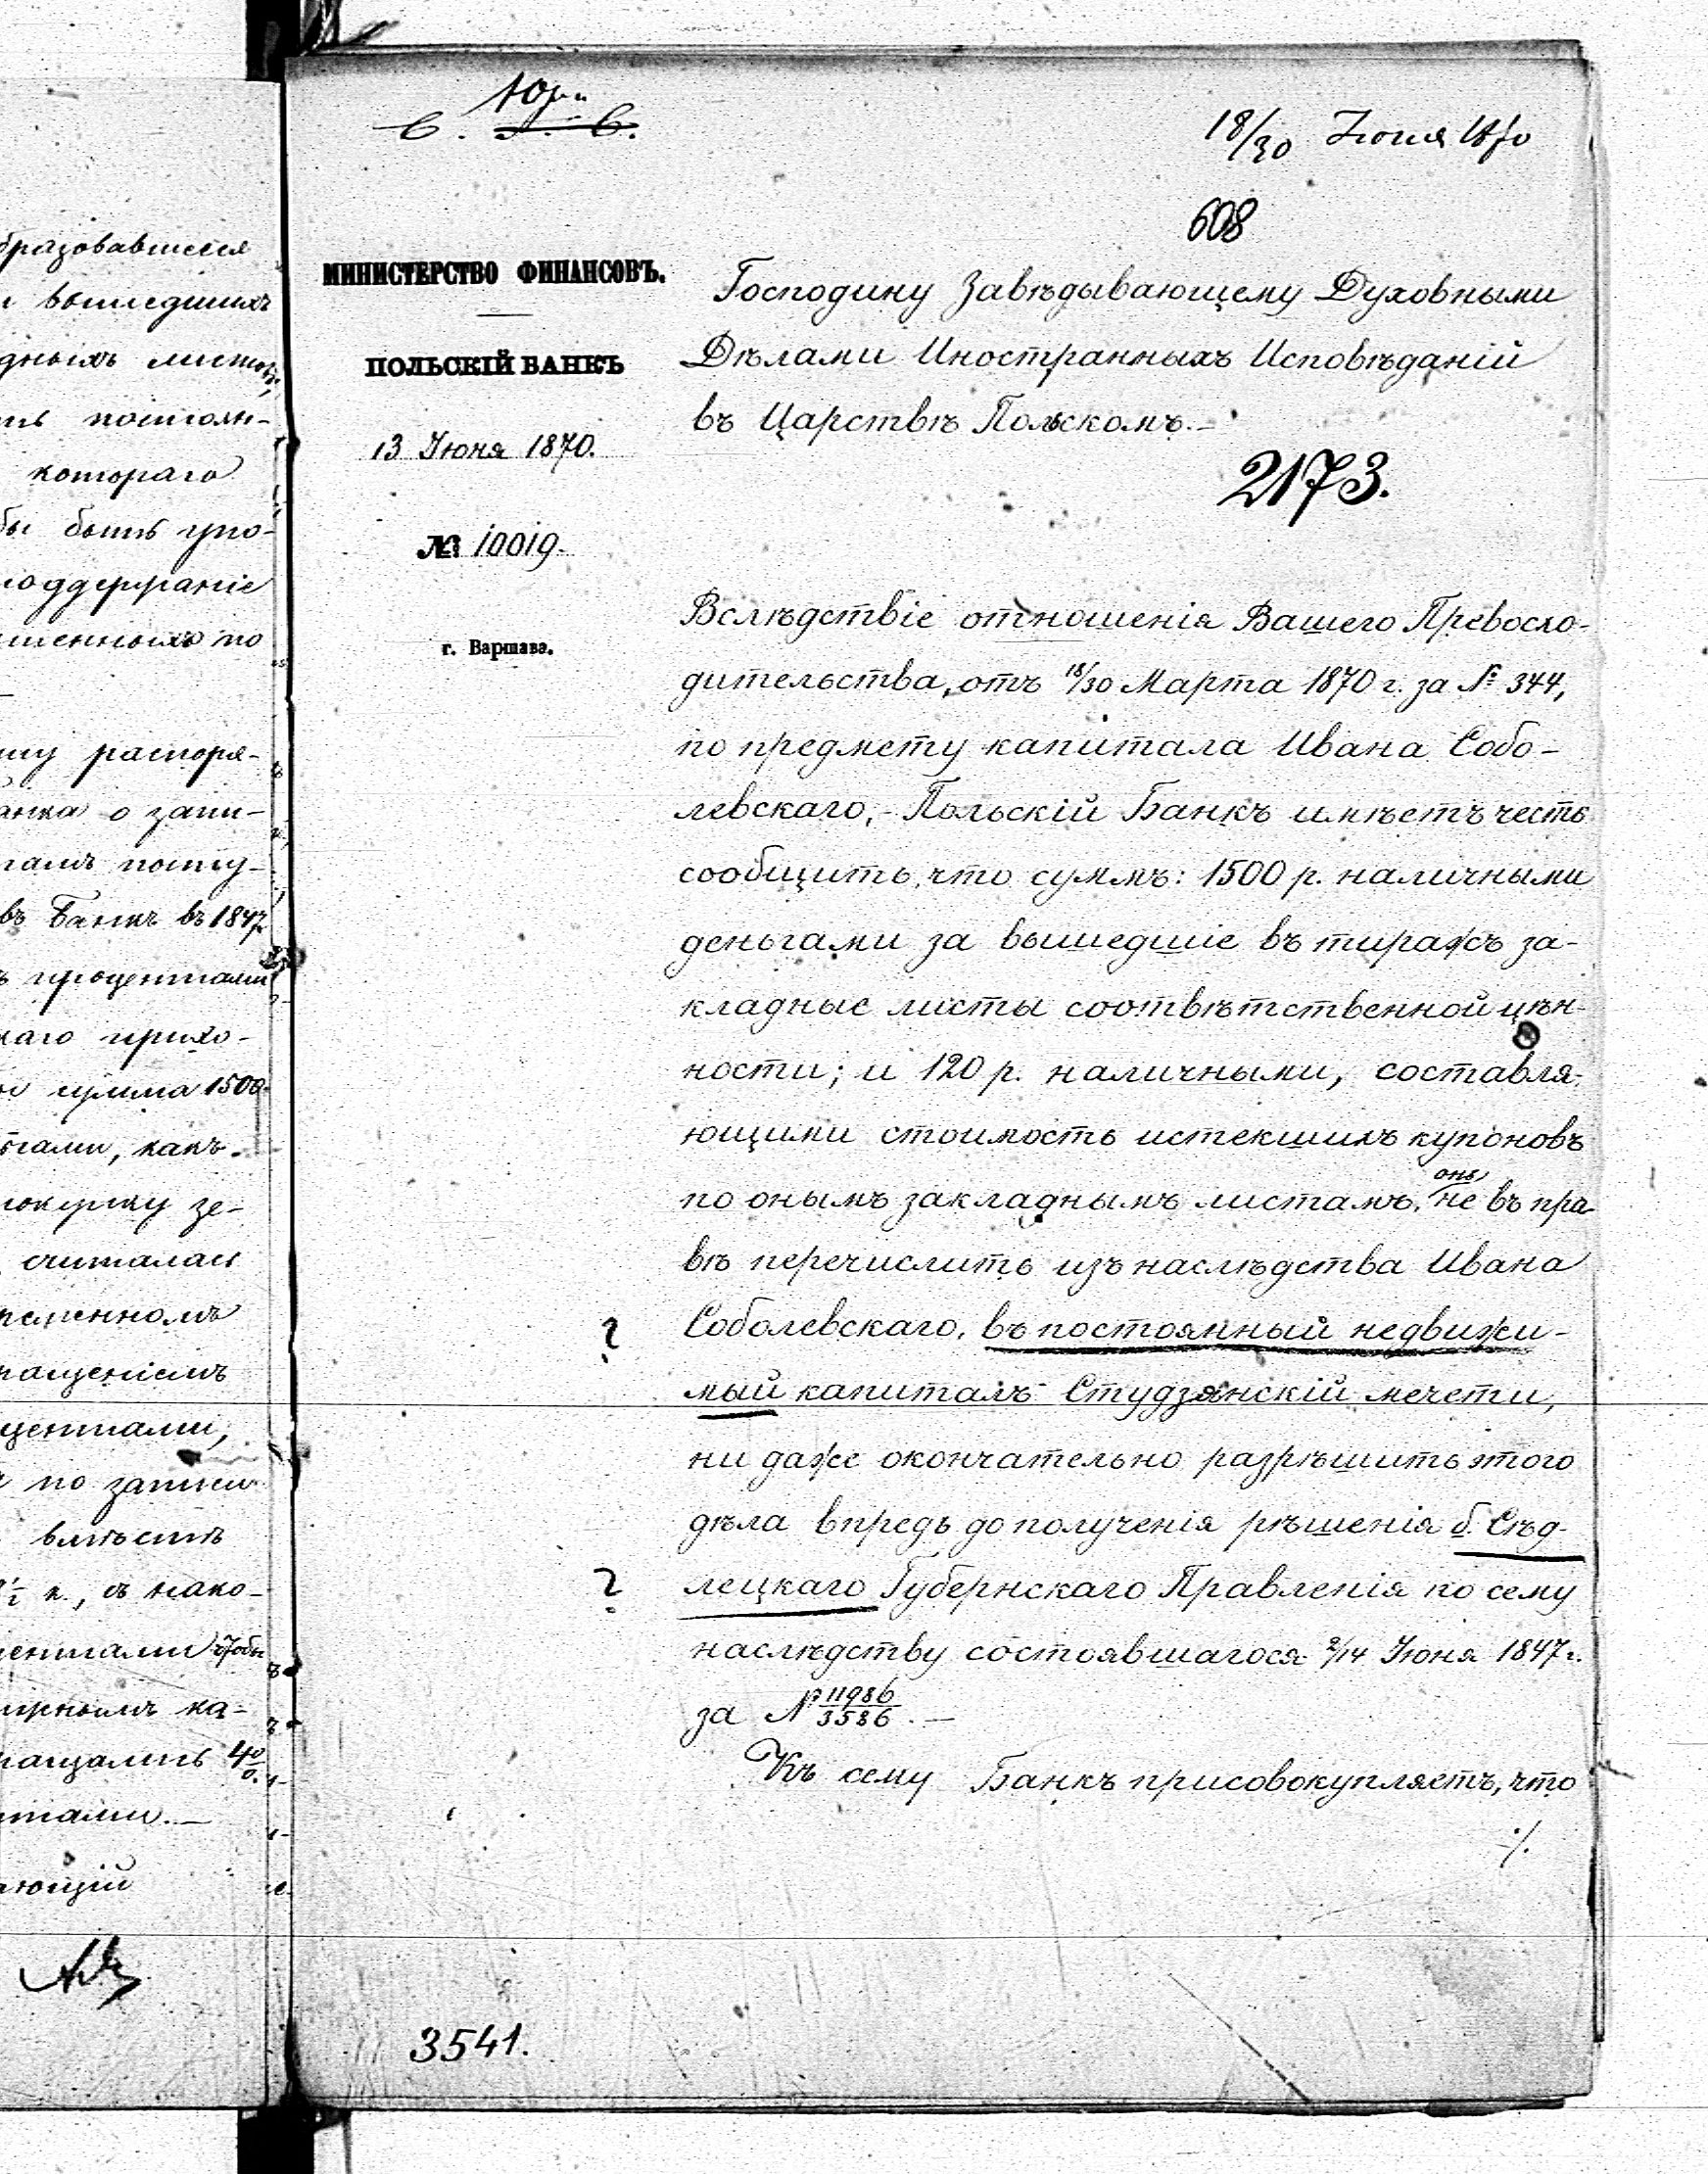 бразовавшееся
вышедшихъ
дныхъ листовъ,
котораго
бы быть упо-
поддержаніе
шенныхъ по
ему распоря-
анка о запи-
въ Банкъ въ 1847
ъ процентами
каго прихо-
сумма 1500
ьгами, какъ
покупку зе-
считалась
ременномъ
ращеніемъ
центами,
по записи
вмѣстѣ
1/2 к., съ нако-
центами чтобы
ирнымъ ка-
ращать 4%
нтами.—
ающій
Юри
С.
18/30 Июня 1870
608
МИНИСТЕРСТВО ФИНАНСОВЪ.
ПОЛЬСКІЙ БАНКЪ
13 Июня 1870.
№ 10019.
г. Варшава.
Господину Завѣдывающему Духовными
Дѣлами Иностранныхъ Исповѣданій
въ Царствѣ Польскомъ.—
2173.
Вслѣдствіе отношенія Вашего Превосхо-
дительства, отъ 18/30 Марта 1870 г. за № 344,
по предмету капитала Ивана Собо-
левскаго,- Польскій Банкъ имѣетъ честь
сообщить, что суммъ: 1500 р. наличными
деньгами за вышедшіе въ тиражъ за-
кладные листы соотвѣтственной цѣн-
ности; и 120 р. наличными, составля-
ющими стоимость истекшихъ купоновъ
по онымъ закладнымъ листамъ, онъ не въ пра-
вѣ перечислить изъ наслѣдства Ивана
? Соболевскаго, въ постоянный недвижи-
мый капиталъ Студзянскій мечети,
ни даже окончательно разрѣшить этого
дѣла впредь до полученія рѣшенія б. Сѣд-
? лецкаго Губернскаго Правленія по сему
наслѣдству состоявшагося 2/14 Июня 1847 г.
за № 11986/3586.—
Къ сему Банкъ присовокупляетъ, что
·/.
3541.